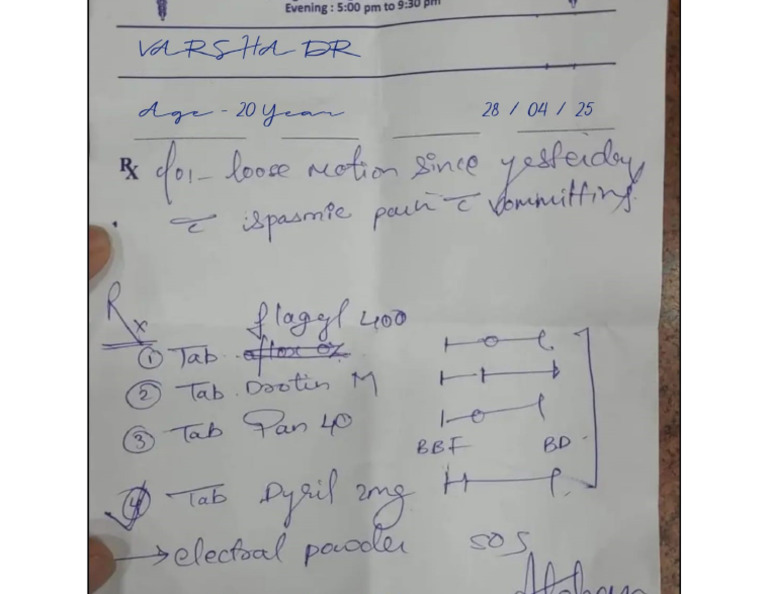 Evening : 5:00 pm to 9:30 pm
VARSHA DR
Age - 20 Year 28 / 04 / 25
Rx c/o:- loose motion since yesterday
c̄ ispasmic pain c̄ vommitting.
Rx
flagyl 400
① Tab. oflox oz
② Tab. Drotin M
③ Tab Pan 40
BBF BD
④ Tab Dyril 2mg
→ electral powder SOS